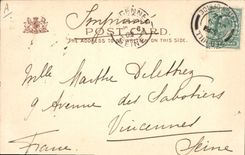 Imprimé
POST CARD.
THE ADDRESS TO BE WRITTEN ON THIS SIDE.
Mlle Marthe Delettrez
9 Avenue des Sabotiers
Vincennes
Seine
France.